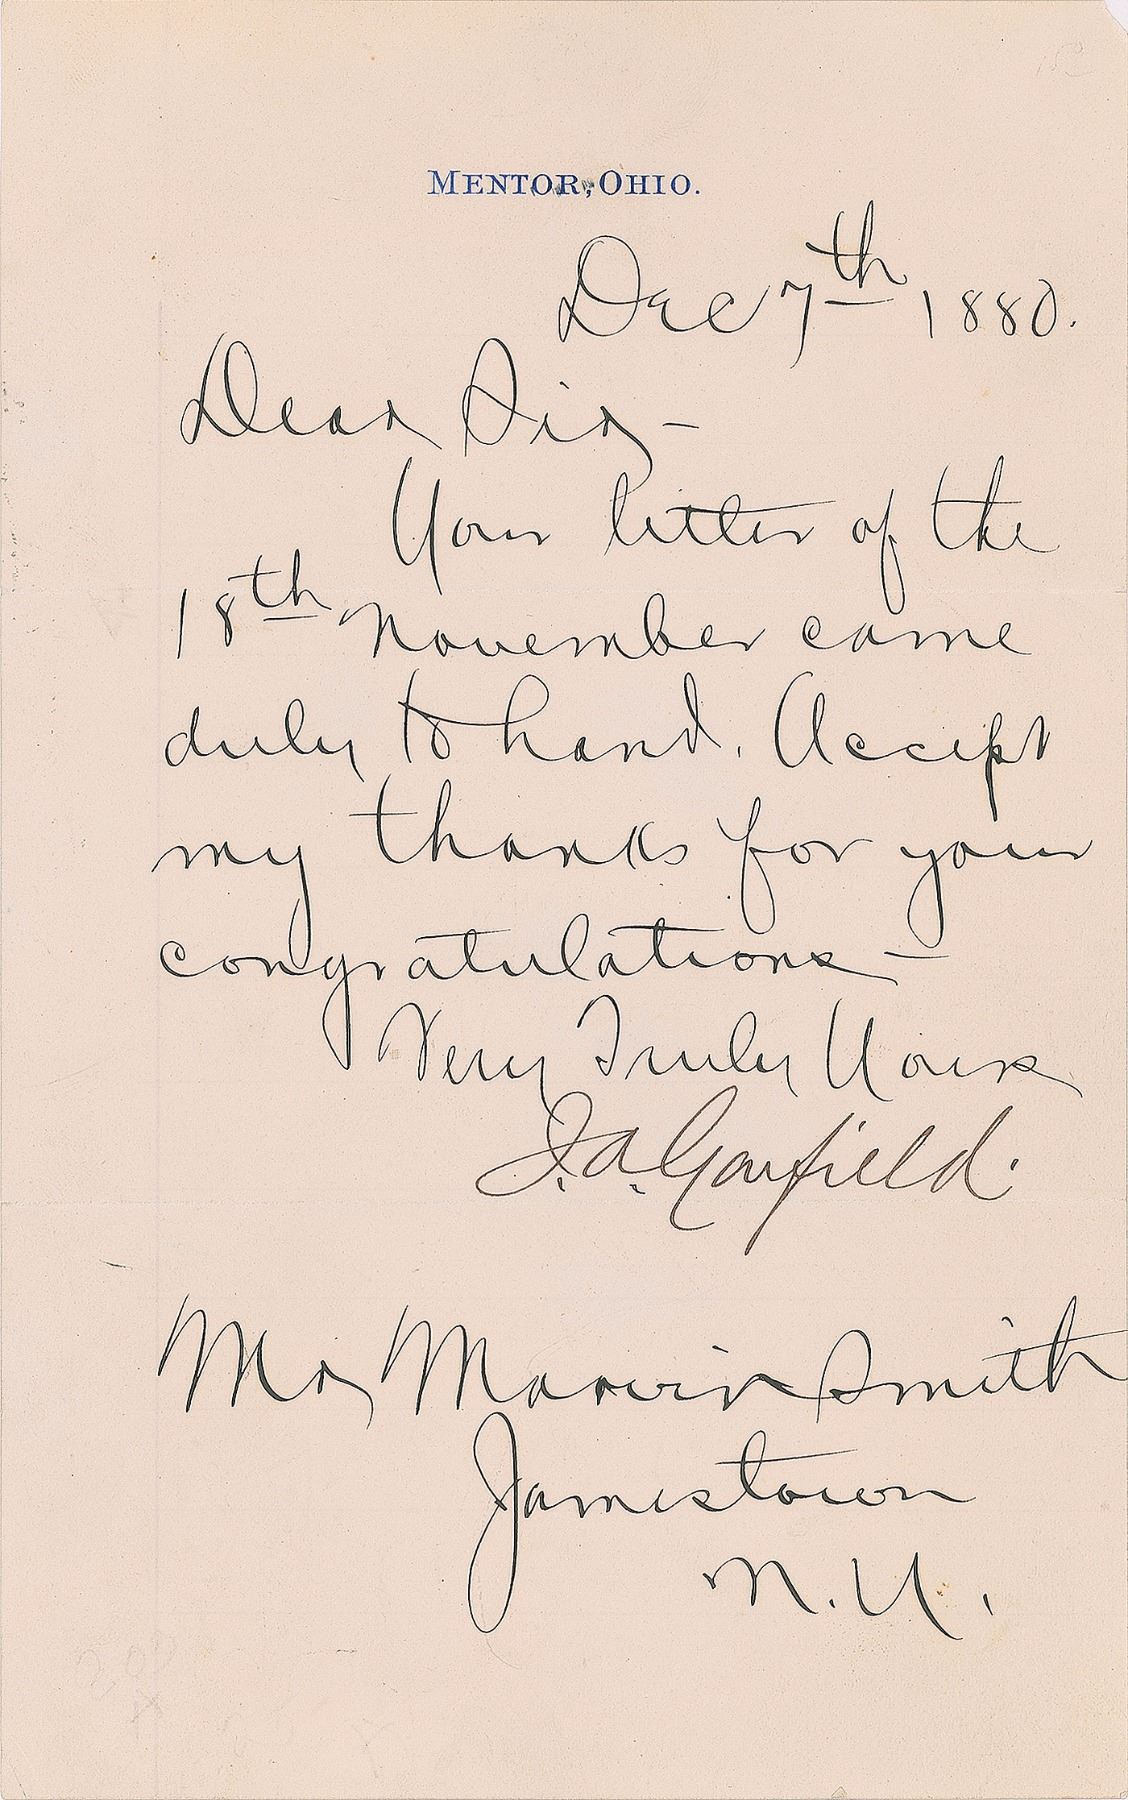 MENTOR, OHIO.
Dec 7th 1880.
Dear Sir –
Your letter of the
18th November came
duly to hand. Accept
my thanks for your
congratulations –
Very Truly Yours
J. A. Garfield.
Mr Marvin Smith
Jamestown
N. Y.